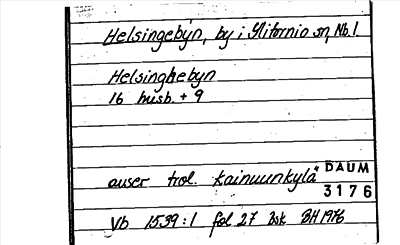 Helsingebyn, by i Ylitornio sn, Nb.l.
Helsinghebyn
16 husb. + 9
avser trol. Kainuunkylä
DAUM
3176
Vb 1539:1 fol 27 Bsk BH 1976